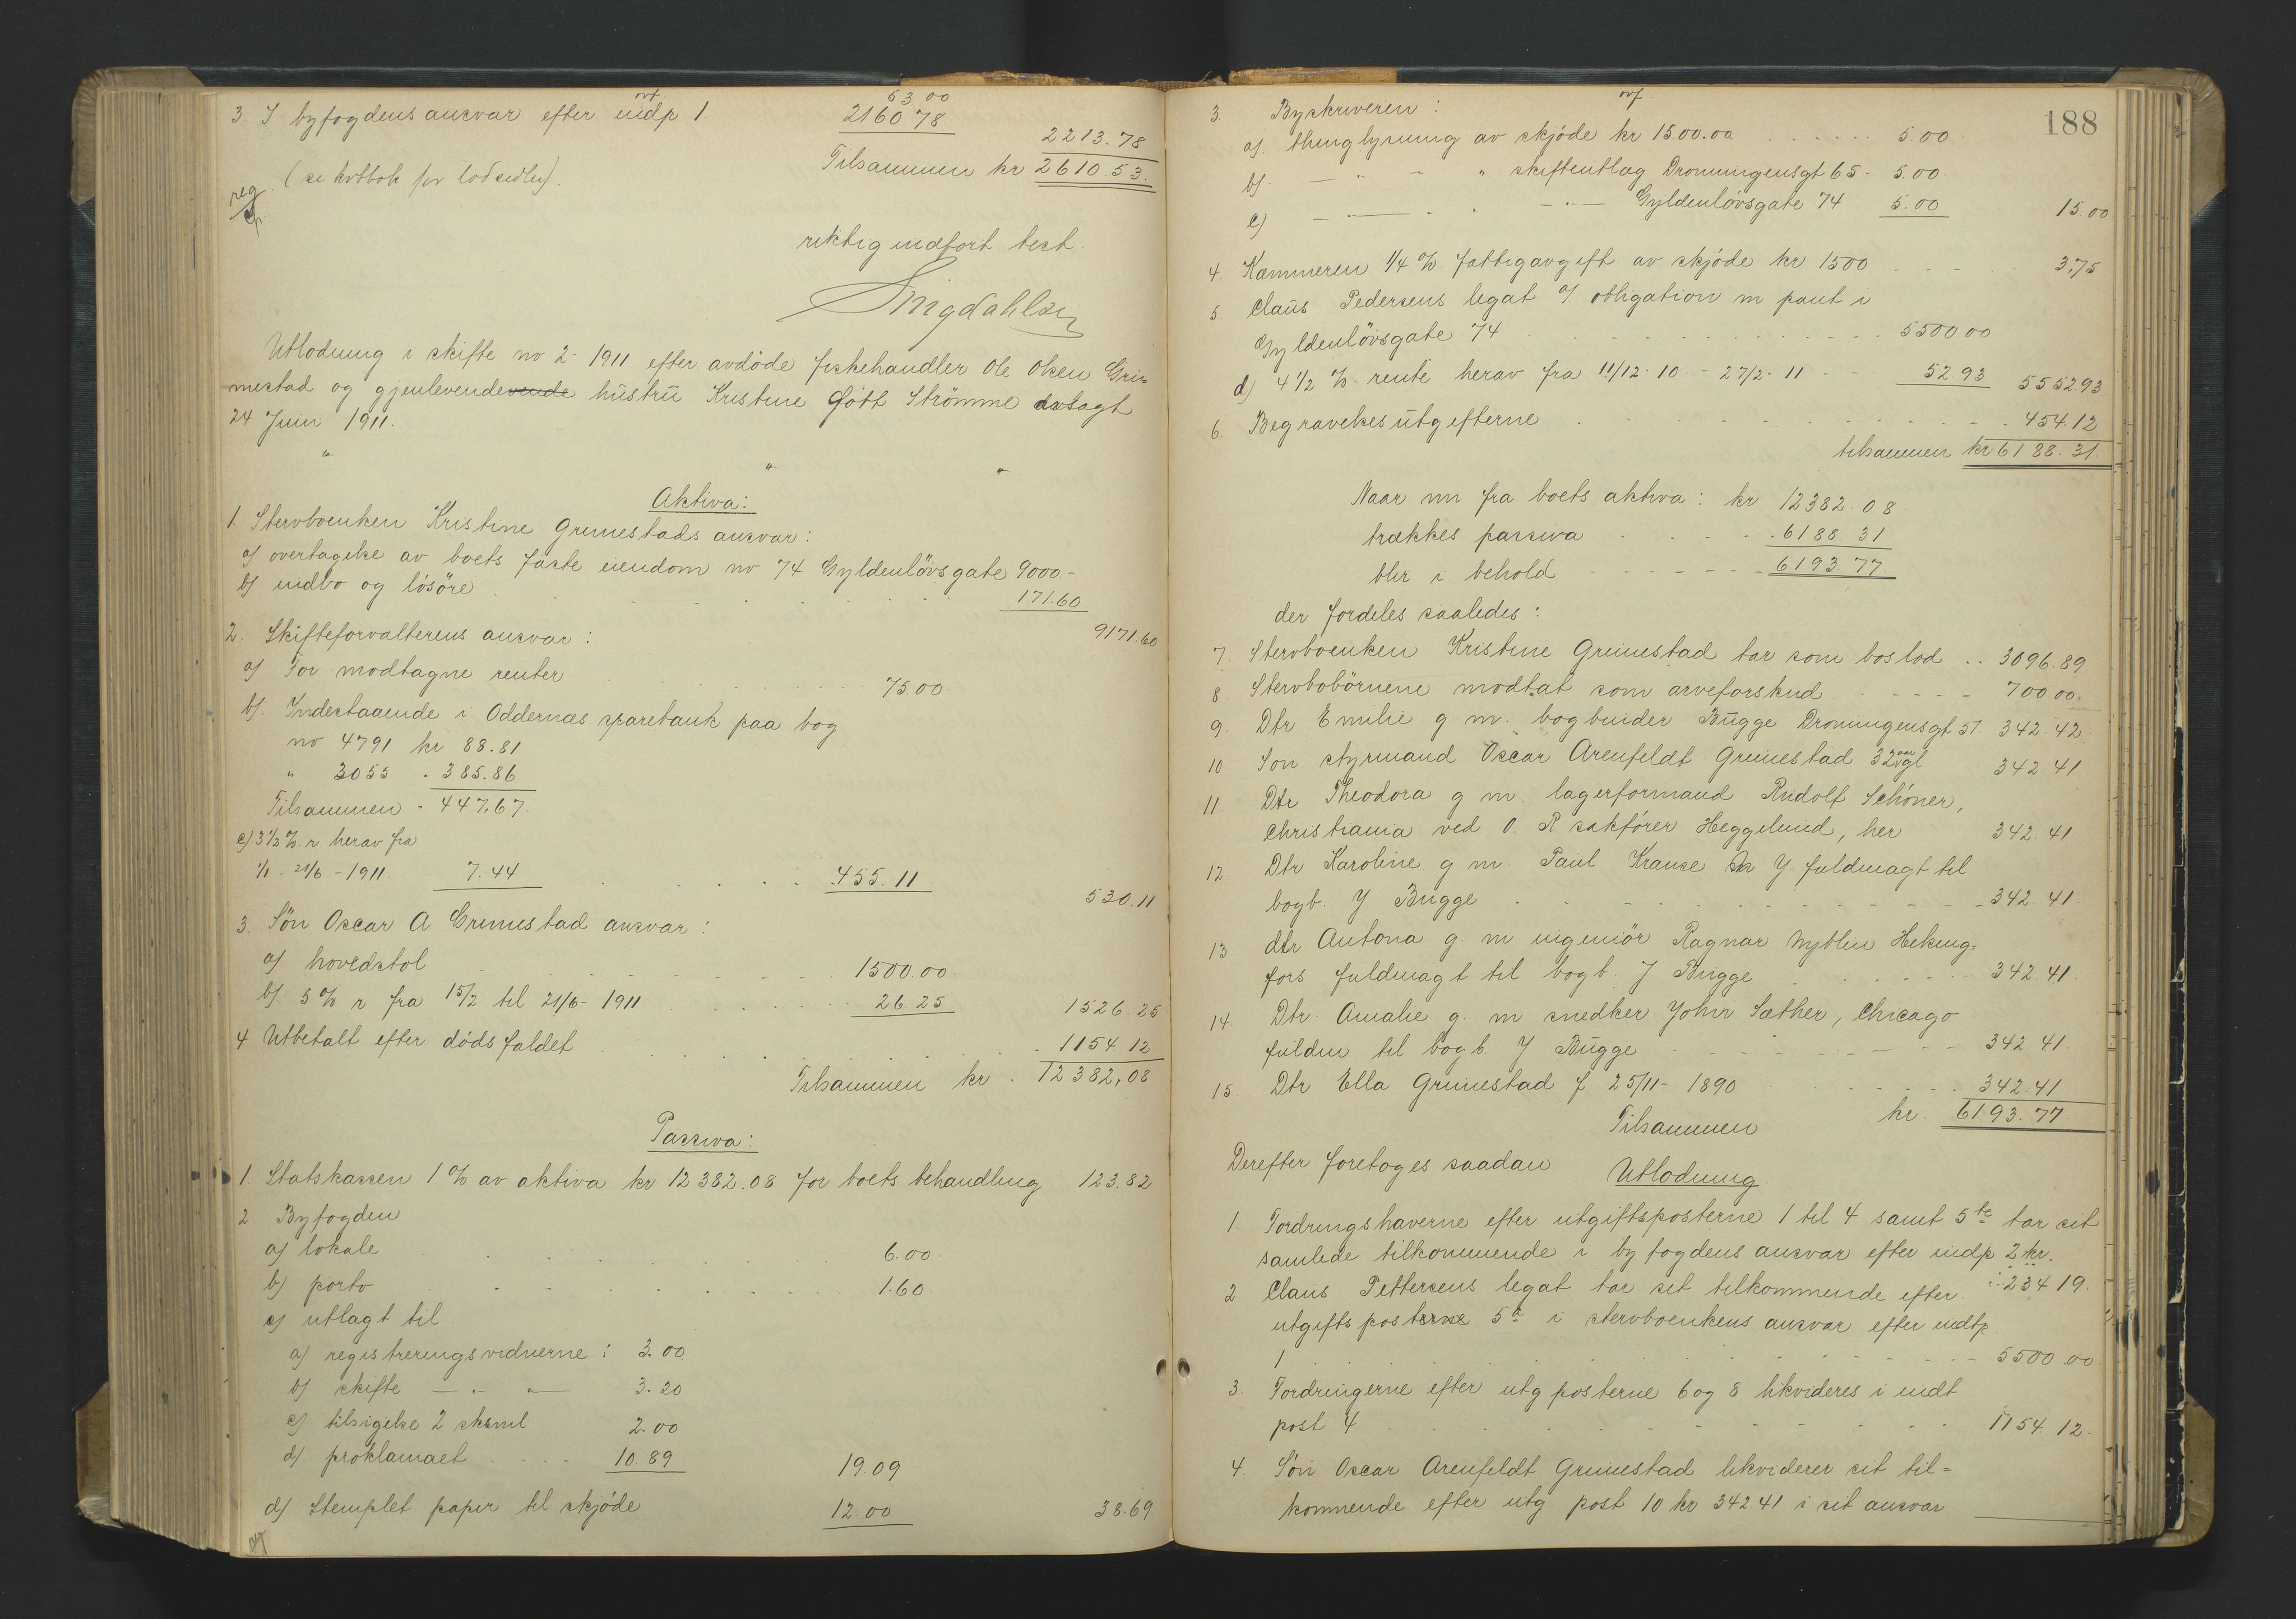 ovf. 53 00
3. I byfogdens ansvar efter indp 1 2160 78
2213.78
Tilsammen kr 2610.53.
(se kvtbok for lodsedler).
reg
riktig indført test.
Utlodning i skifte no 2- 1911 efter avdöde fiskehandler Ole Olsen Gri-
mestad og gjenlevendevende hüstrü Kristine født Strömme
24 Juni 1911.
" " "
Aktiva:
1. Stervboenken Kristine Grimestads ansvar:
a) overtagelse av boets faste eiendom no 74 Gyldenlövsgate 9000-
b) indbo og lösöre 171.60
9171.60
2. Skifteforvalterens ansvar:
a) For modtagne renter 75.00
b). Indestaaende i Oddernæs sparebank paa bog
no 4791 kr 88.81
" 3055 . 385.86
Tilsammen - 447.67.
c) 3 1/2 % r herav fra
1/1 - 21/6 - 1911. 7.44 455.11
530.11
3. Sön Oscar A Grimestad ansvar:
a) hovedstol 1500.00
b) 5 % r fra 15/2 til 21/6- 1911 26.25 1526.25
4 Utbetalt efter dödsfaldet 1154 12
Tilsammen kr. 12382,08
Passiva:
1. Statskassen 1 % av aktiva kr 12382.08 for boets behandling 123.82
2 Byfogden
a) lokale 6.00
b) porto 1.60
c) utlagt til
a) registreringsvidnerne: 3.00
b) skifte — " — 3.20
c) tilsigelse 2 skeml 2.00
d) proklamaet 10.89 19.09
d) Stemplet papir til skjöde 12.00 38.69
188
ovf.
3. Byskriveren:
a). thinglysning av skjöde kr 1500.00 5.00
b). — " - " skiftentlæg Dronningensgt 65- 5.00
c) — " — Gyldenlövsgate 74 5.00 15.00
4 Kæmneren 1/4 % fattigavgift av skjöde kr 1500 3.75
5. Claus Pedersens legat a/ obligation m pant i
Gyldenlövsgate 74 5500.00
d) 4 1/2 % rente herav fra 11/12-10 - 27/2-11 52.93 5552.93
6. Begravelsesütgifterne 454.12
tilsammen kr 6188.31
Naar nu fra boets aktiva: kr 12382.08
trækkes passiva 6188.31
blir i behold 6193.77
der fordeles saaledes:
7. Stervboenken Kristine Grimestad tar som boslod .. 3096.89
8. Stervbobörnene modtat som arveforskud 700.00.
9. Dtr Emilie g m. bogbinder Bügge Dronningensgt 51. 342.42
10. Son styrmand Oscar Arenfeldt Grimestad 32 aar gl 342.41
11 Dtr Theodora g m. lagerformand Rudolf Schöner,
Christiania ved O. R sakfører Heggelund, her 342.41
12. Dtr Karoline g m. Paul Krause fuldmagt til
bogb. J Bugge 342.41.
13 dtr Antona g m ingeniör Ragnar Nyblin Helsing-
fors fuldmagt til bogb. J Bugge 342.41.
14. Dtr. Amalie g. m snedker John Sæther, Chicago
füldm til bogb J Bügge 342 41.
15. Dtr Ella Grimestad f 25/11- 1890 342.41
Tilsammen kr. 6193.77
Derefter foretoges saadan Utlodning
1. Fordringshaverne efter utgiftsposterne 1 til 4 samt 5 te tar sit
samlede tilkommende i byfogdens ansvar efter indp 2 kr.
234 19.
2 Claus Pettersens legat tar sit tilkommende efter
utgiftsposterne 5 a i stervboenkens ansvar efter indtp
1 5500.00
3. Fordringerne efter utg posterne 6 og 8 likvideres i indt
post 4 1154 12.
4. Sön Oscar Arenfeldt Grimestad likviderer sit til-
kommende efter utg. post 10 kr 342 41 i sit ansvar